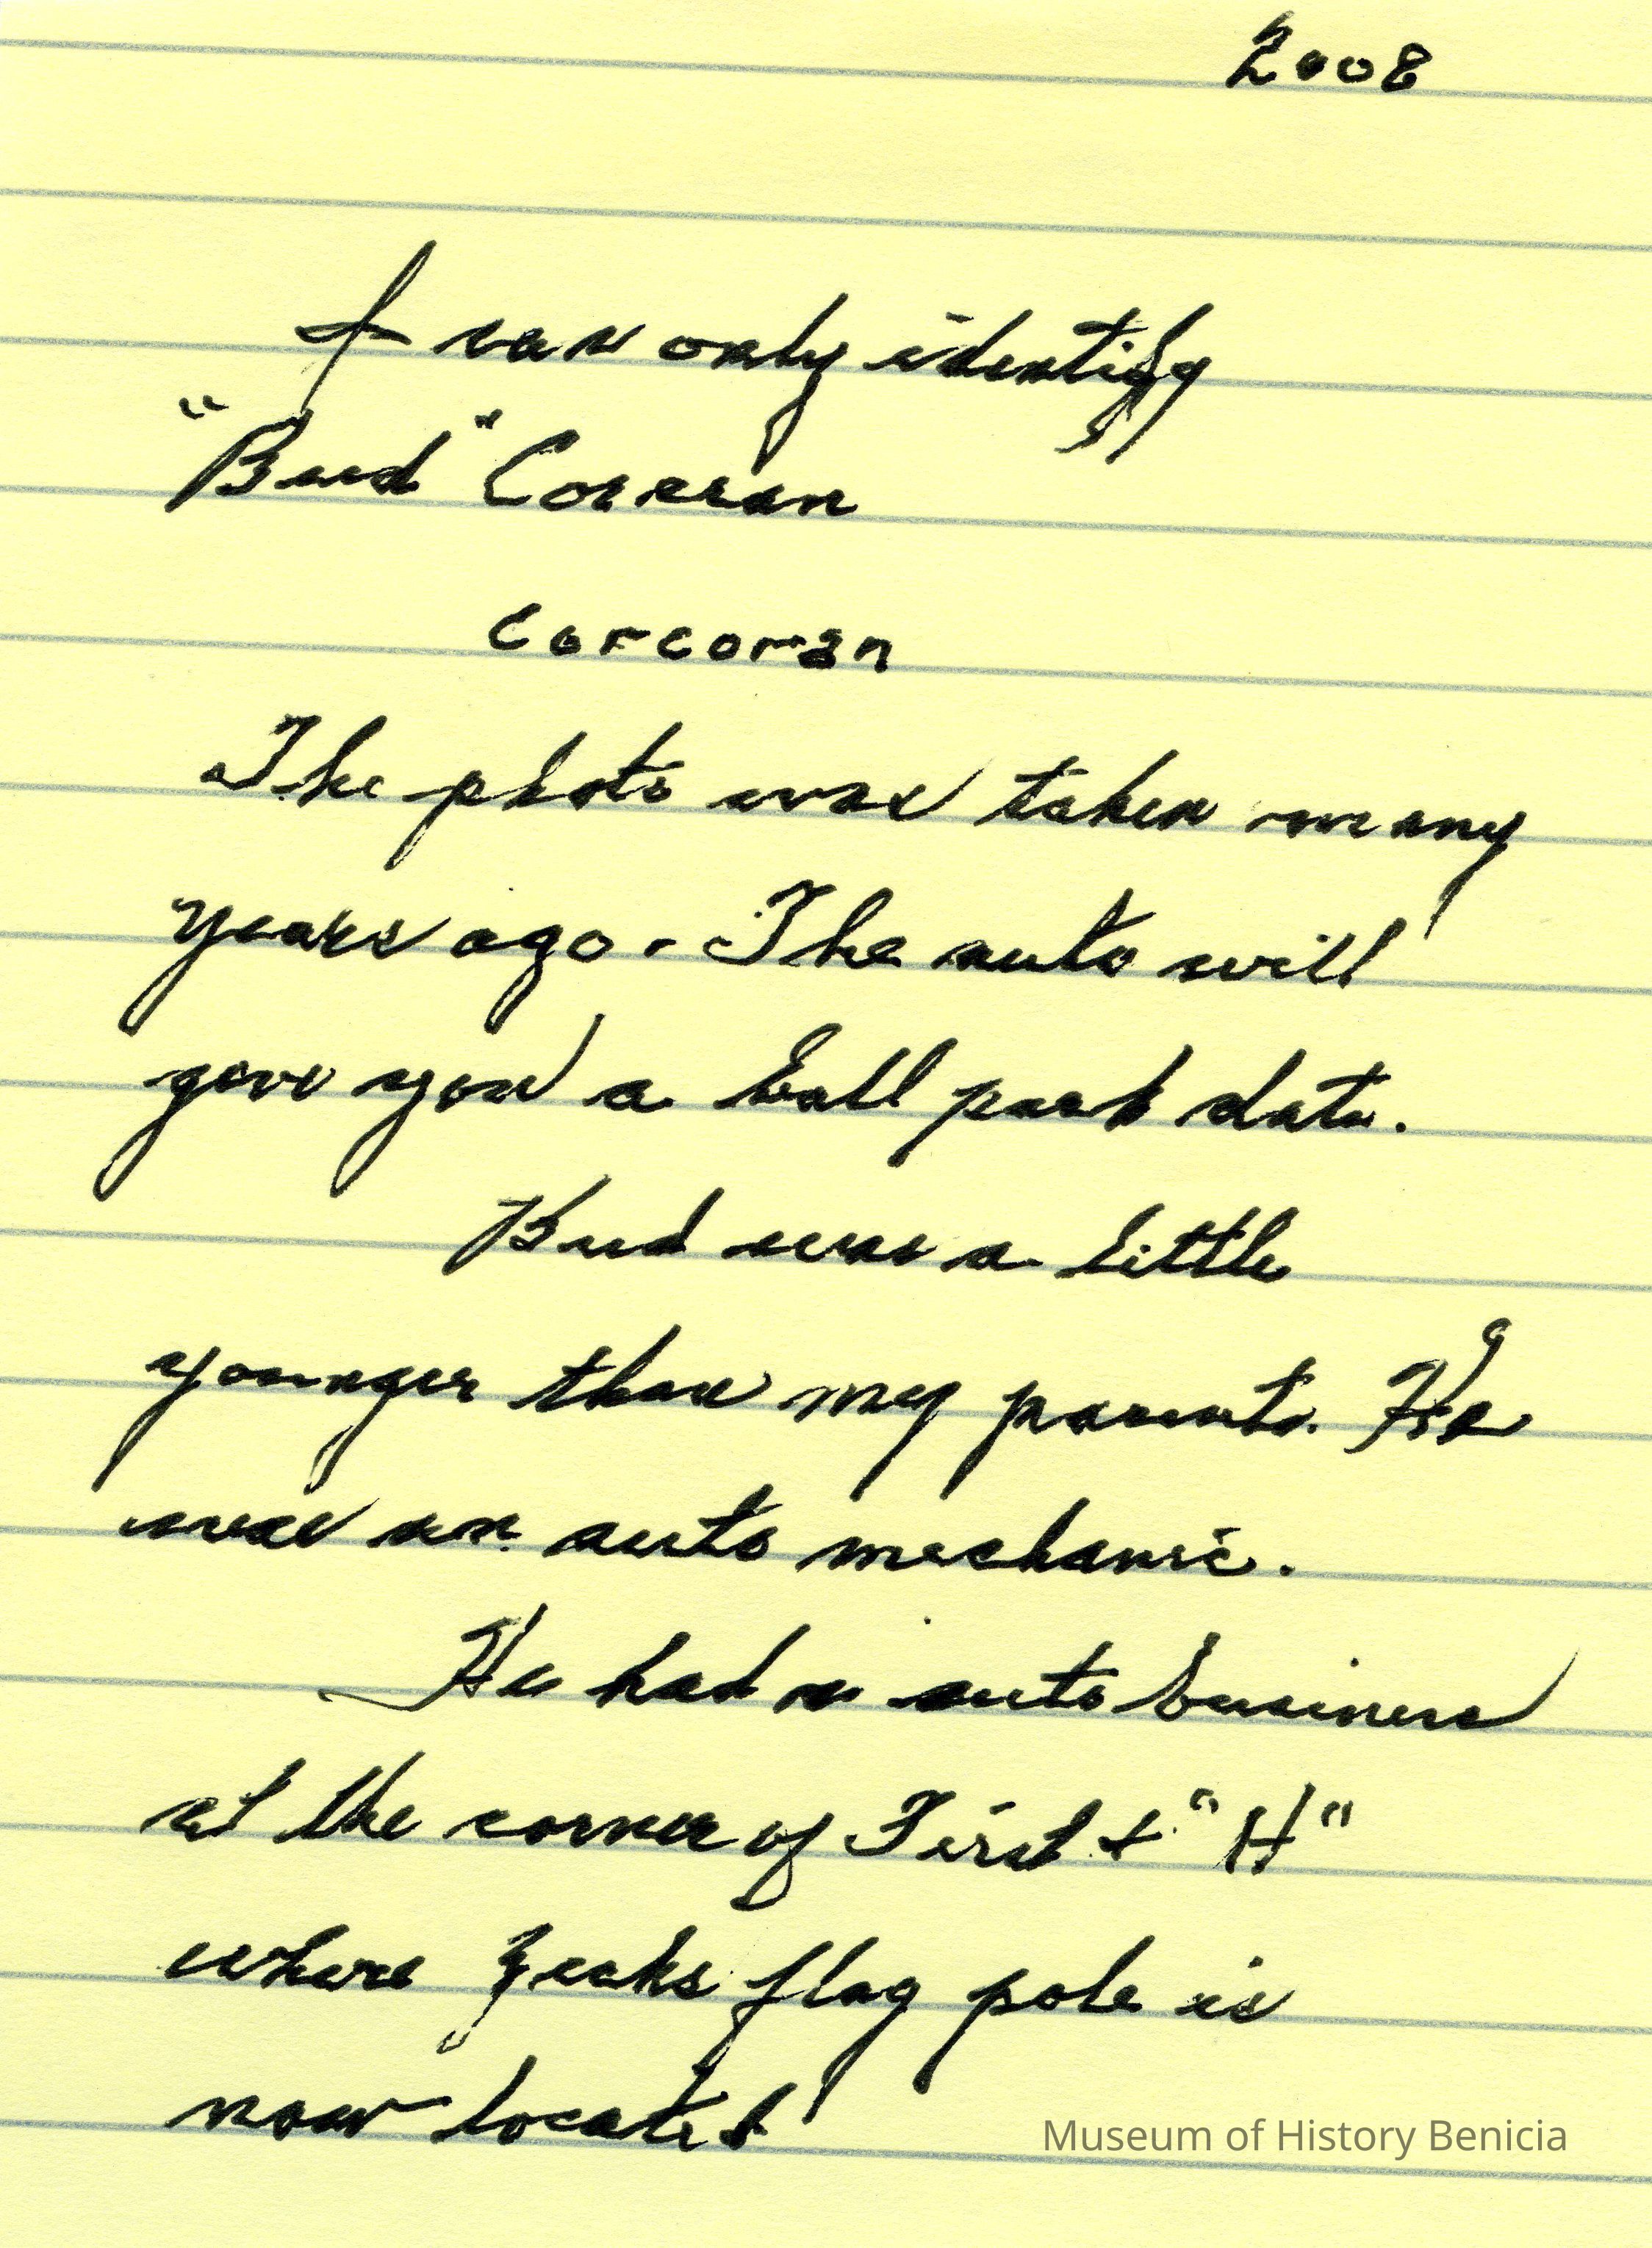 2008
I can only identify
"Bud" Corcran
Corcoran
The photo was taken many
years ago. The auto will
give you a ball park date.
Bud was a little
younger than my parents. He
was an auto mechanic.
He had an auto business
at the corner of First + "H"
where flag pole is
now located
Museum of History Benicia